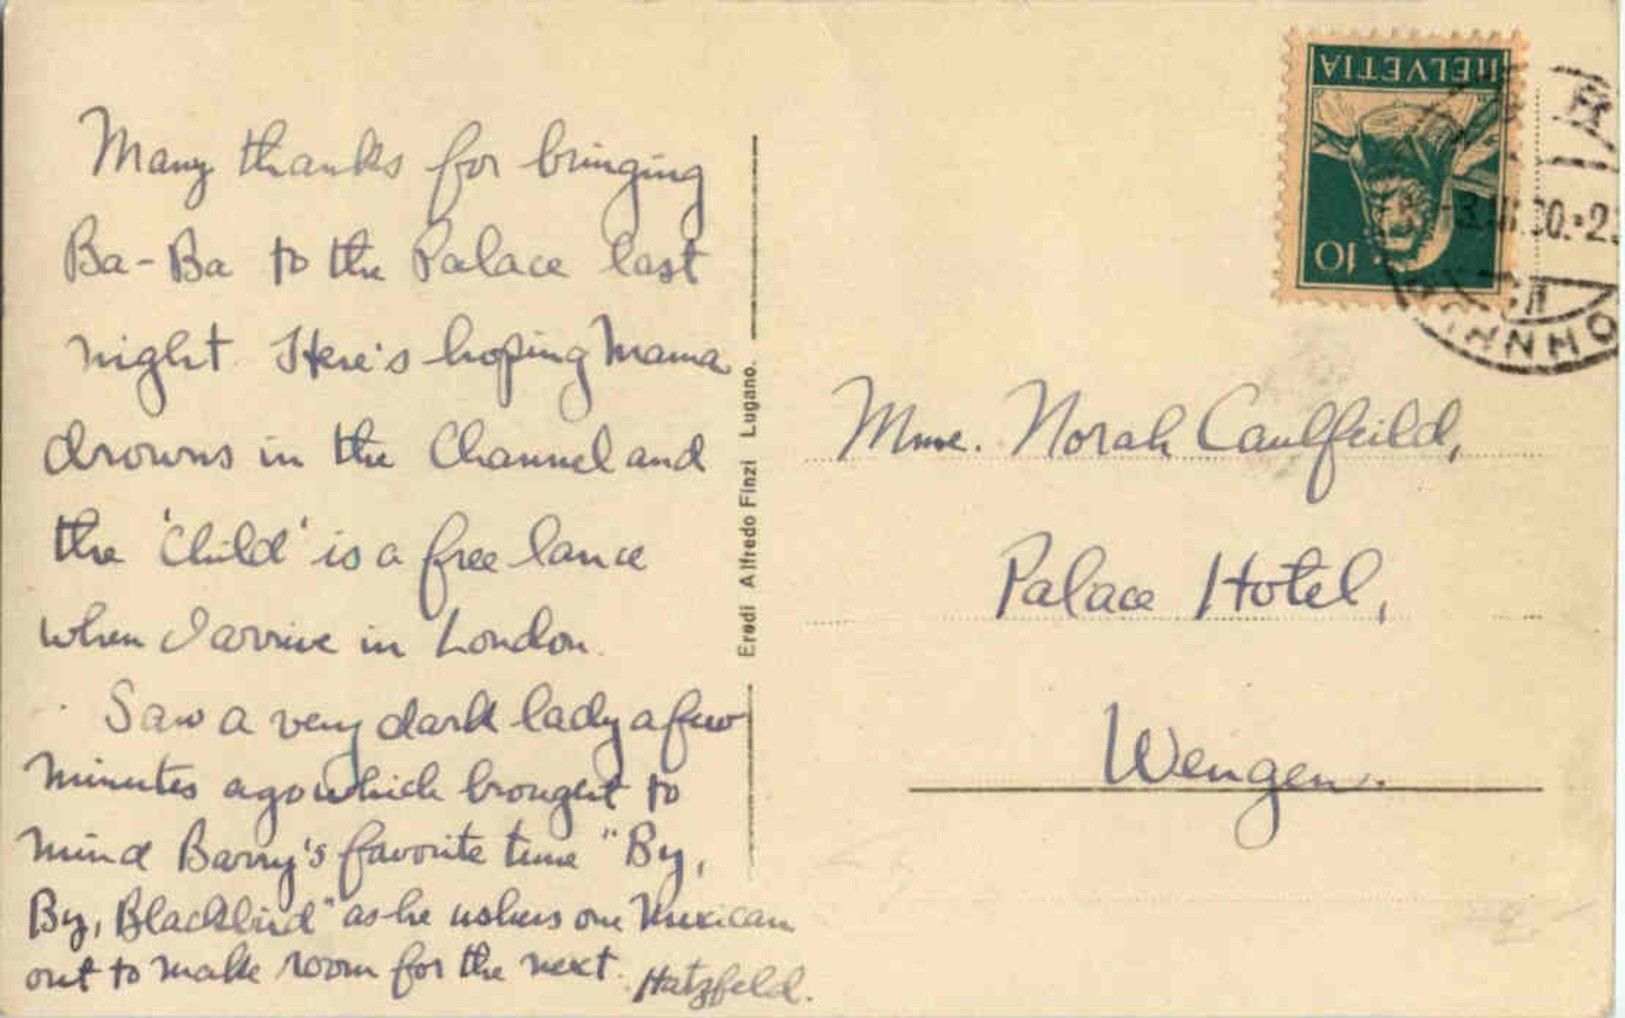 Many thanks for bringing
Ba-Ba to the Palace last
night. Here's hoping Mama
drowns in the Channel and
the 'Child' is a free lance
when I arrive in London.
Saw a very dark lady a few
minutes ago which brought to
mind Barry's favorite tune "By,
By, Blackbird" as he ushers one Mexican
out to make room for the next.
Hatzfeld.
Eredi Alfredo Finzi Lugano.
HELVETIA
10
Mme. Norah Caulfeild,
Palace Hotel,
Wengen.